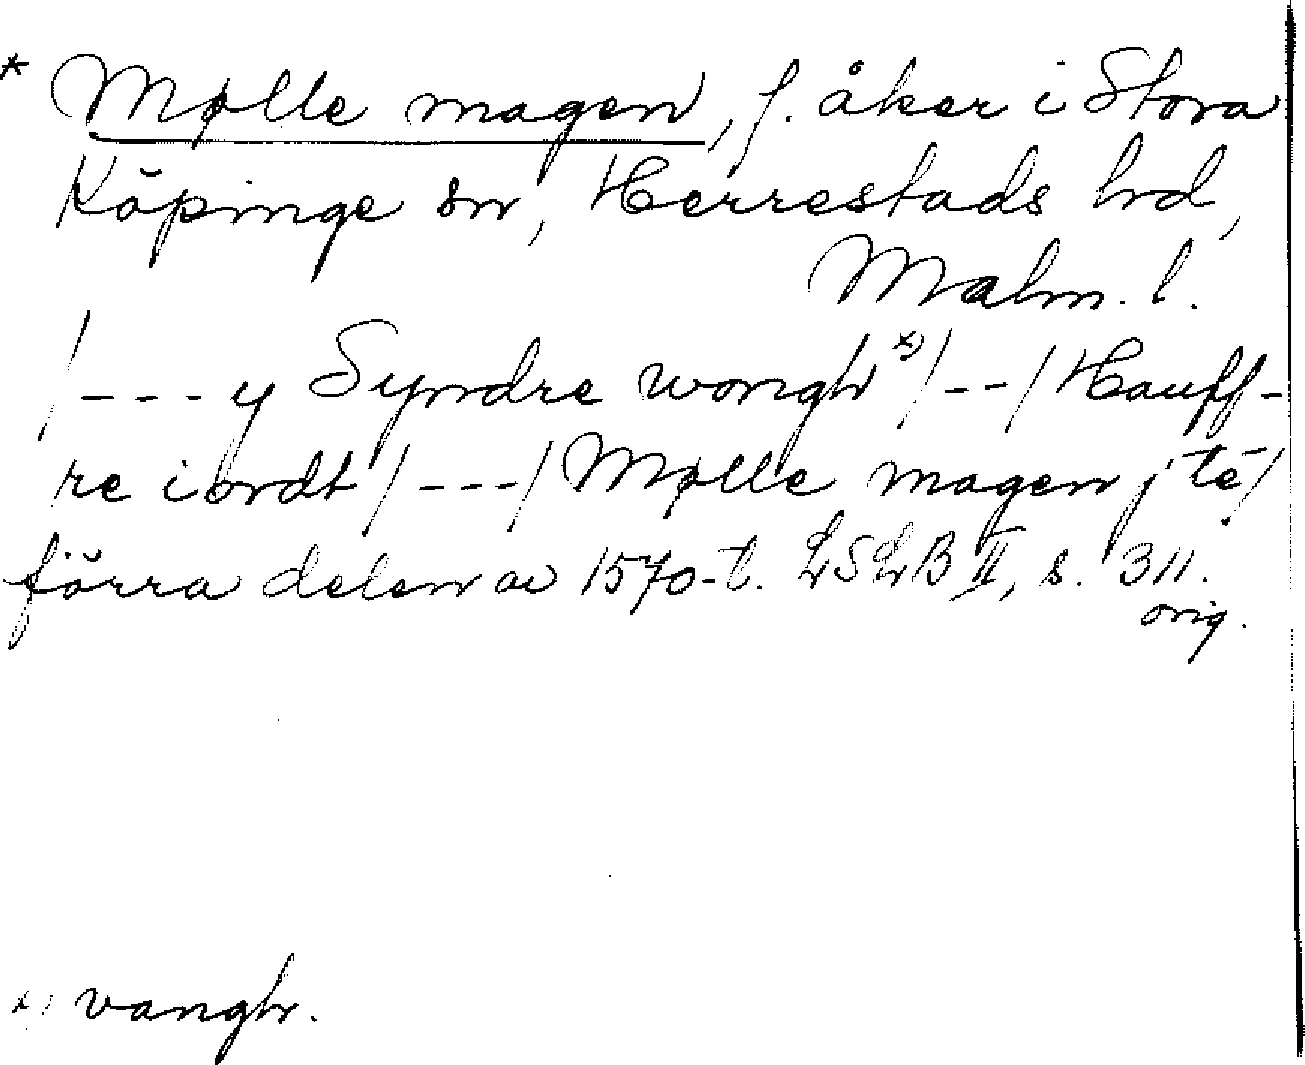 * Mølle magen, f. åker i Stora
Köpinge sn, Herrestads hd,
Malm. l.
/---y Syndre wongh x) /--/ Hauff-
re iordt /---/ Mølle magen j te/
förra delen av 1570-t. LSLB II, s. 311.
orig.
x) vangh.